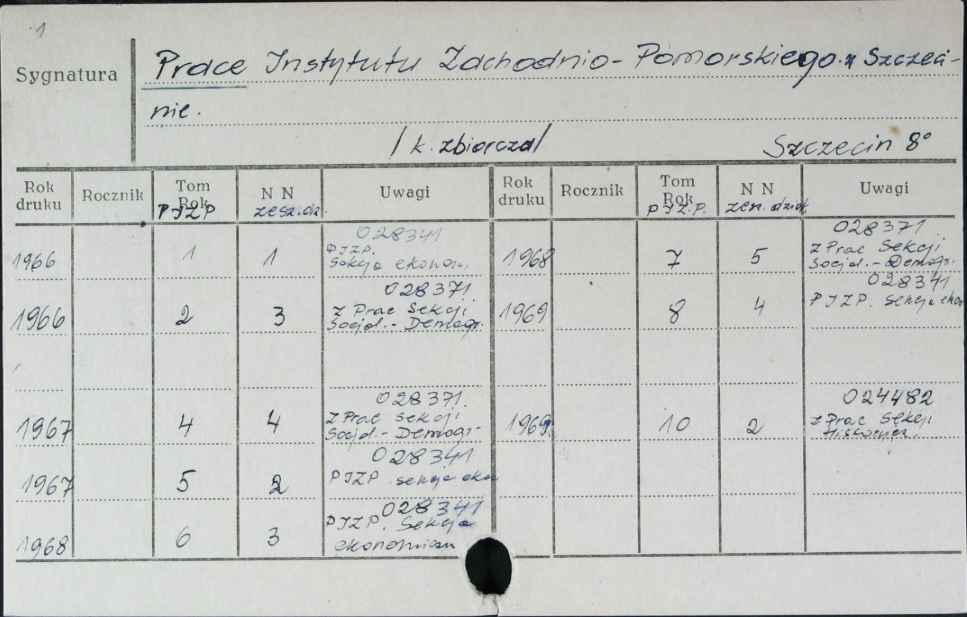 1
Sygnatura
Prace Instytutu Zachodnio-Pomorskiego w Szczeci-
nie.
/k. zbiorcza/ Szczecin 8°
Rok druku Rocznik Tom Rok PIZP N N zesz. dz. Uwagi
1966 1 1 028341 PIZP. Sekcja ekonom.
1966 2 3 028371 z Prac Sekcji Socjol.-Demogr.
1967 4 4 028371. z Prac Sekcji Socjol.-Demogr.
1967 5 2 028341 PIZP. sekcja eko
1968 6 3 028341 PIZP. Sekcja ekonomiczn
Rok druku Rocznik Tom Rok PIZ.P. N N zesz. dział Uwagi
1968 7 5 028371 z Prac Sekcji Socjol.-Demogr.
1969 8 4 028341 PIZP. Sekcja eko
1969. 10 2 024482 z Prac Sekcji